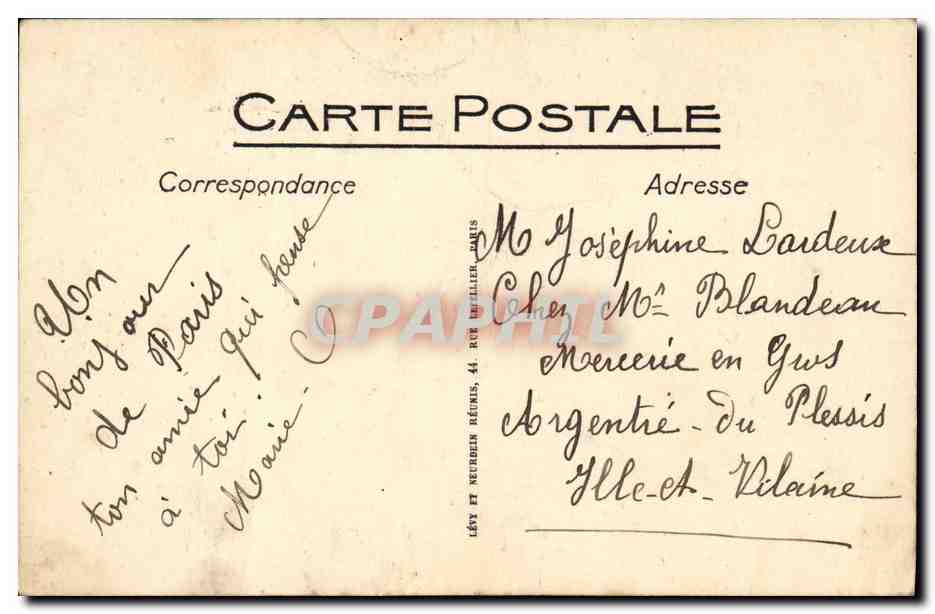 CARTE POSTALE
Correspondance
Un
bonjour
de Paris
ton amie qui pense
à toi!
Marie-C
Adresse
M Joséphine Lardeux
Chez Mr Blandeau
Mercerie en Gros
Argentré-du Plessis
Ille-et-Vilaine
LÉVY ET NEURDEIN RÉUNIS, 44, RUE LETELLIER, PARIS
CPAPHIL